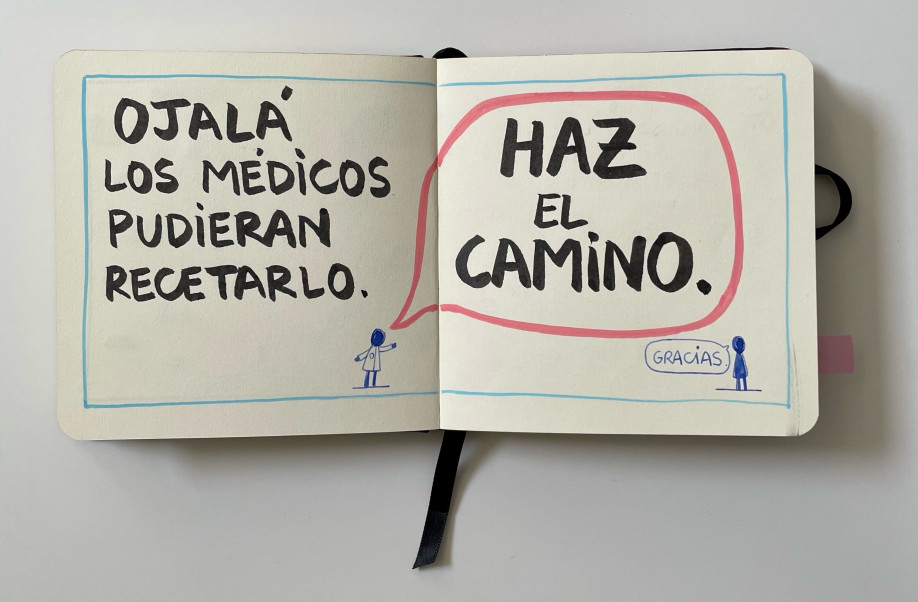 OJALÁ
LOS MÉDICOS
PUDIERAN
RECETARLO.
HAZ
EL
CAMINO.
GRACIAS.